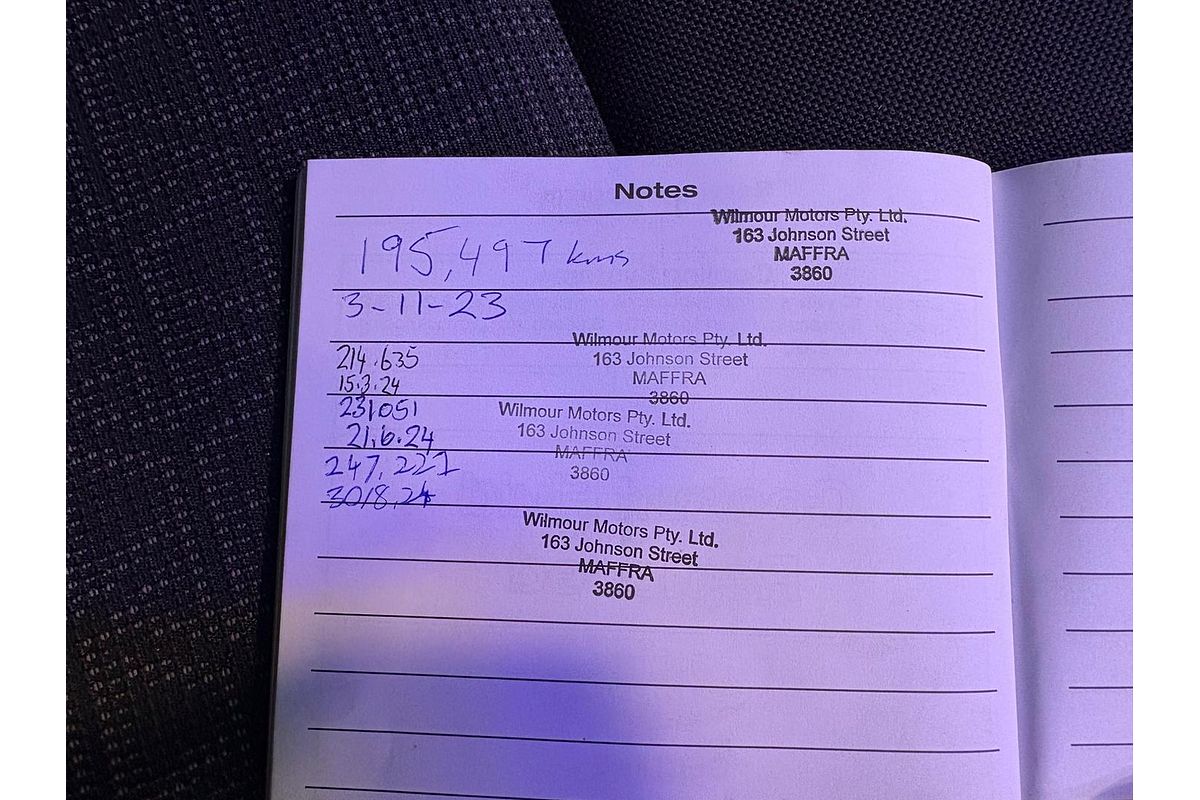 Notes
Wilmour Motors Pty. Ltd.
163 Johnson Street
MAFFRA
3860
195,497 kms
3-11-23
Wilmour Motors Pty. Ltd.
163 Johnson Street
MAFFRA
3860
214.635
15.3.24
Wilmour Motors Pty. Ltd.
163 Johnson Street
MAFFRA
3860
231051
21.6.24
247,221
30/8.24
Wilmour Motors Pty. Ltd.
163 Johnson Street
MAFFRA
3860